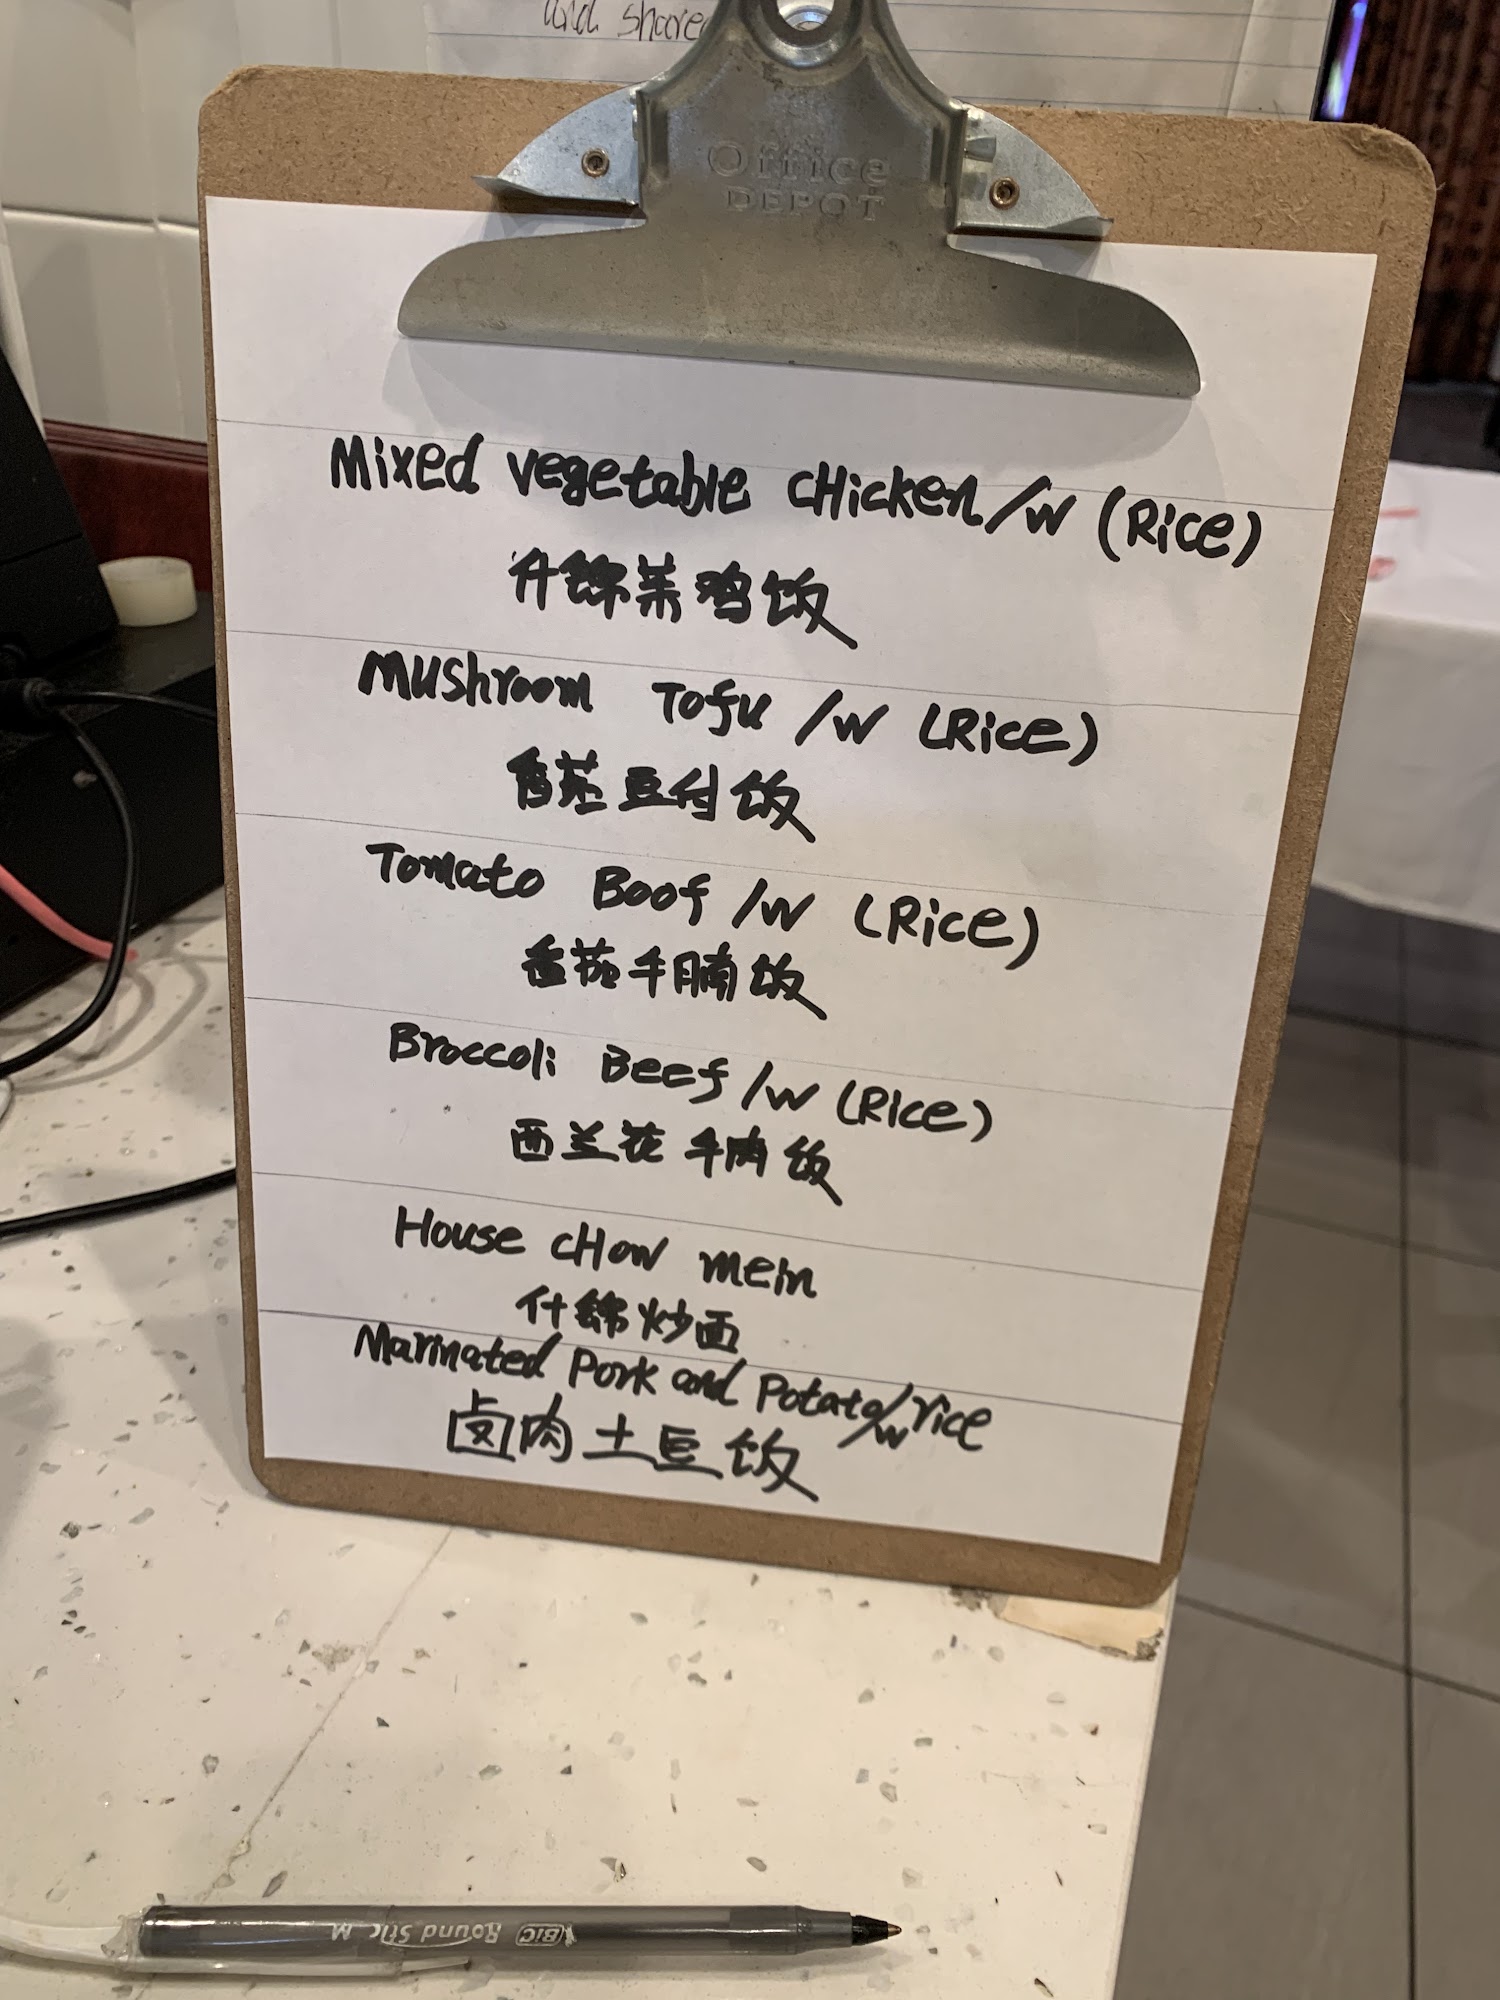 and share
Office
DEPOT
Mixed vegetable CHicken/w (Rice)
什錦菜鸡饭
Mushroom Tofu /w (Rice)
香菇豆付饭
Tomato Boof /w (Rice)
番茄牛腩饭
Broccoli Beef /w (Rice)
西兰花牛肉饭
House CHow mein
什錦炒面
Marinated Pork and Potato/w rice
卤肉土豆饭
BIC Round Stic M